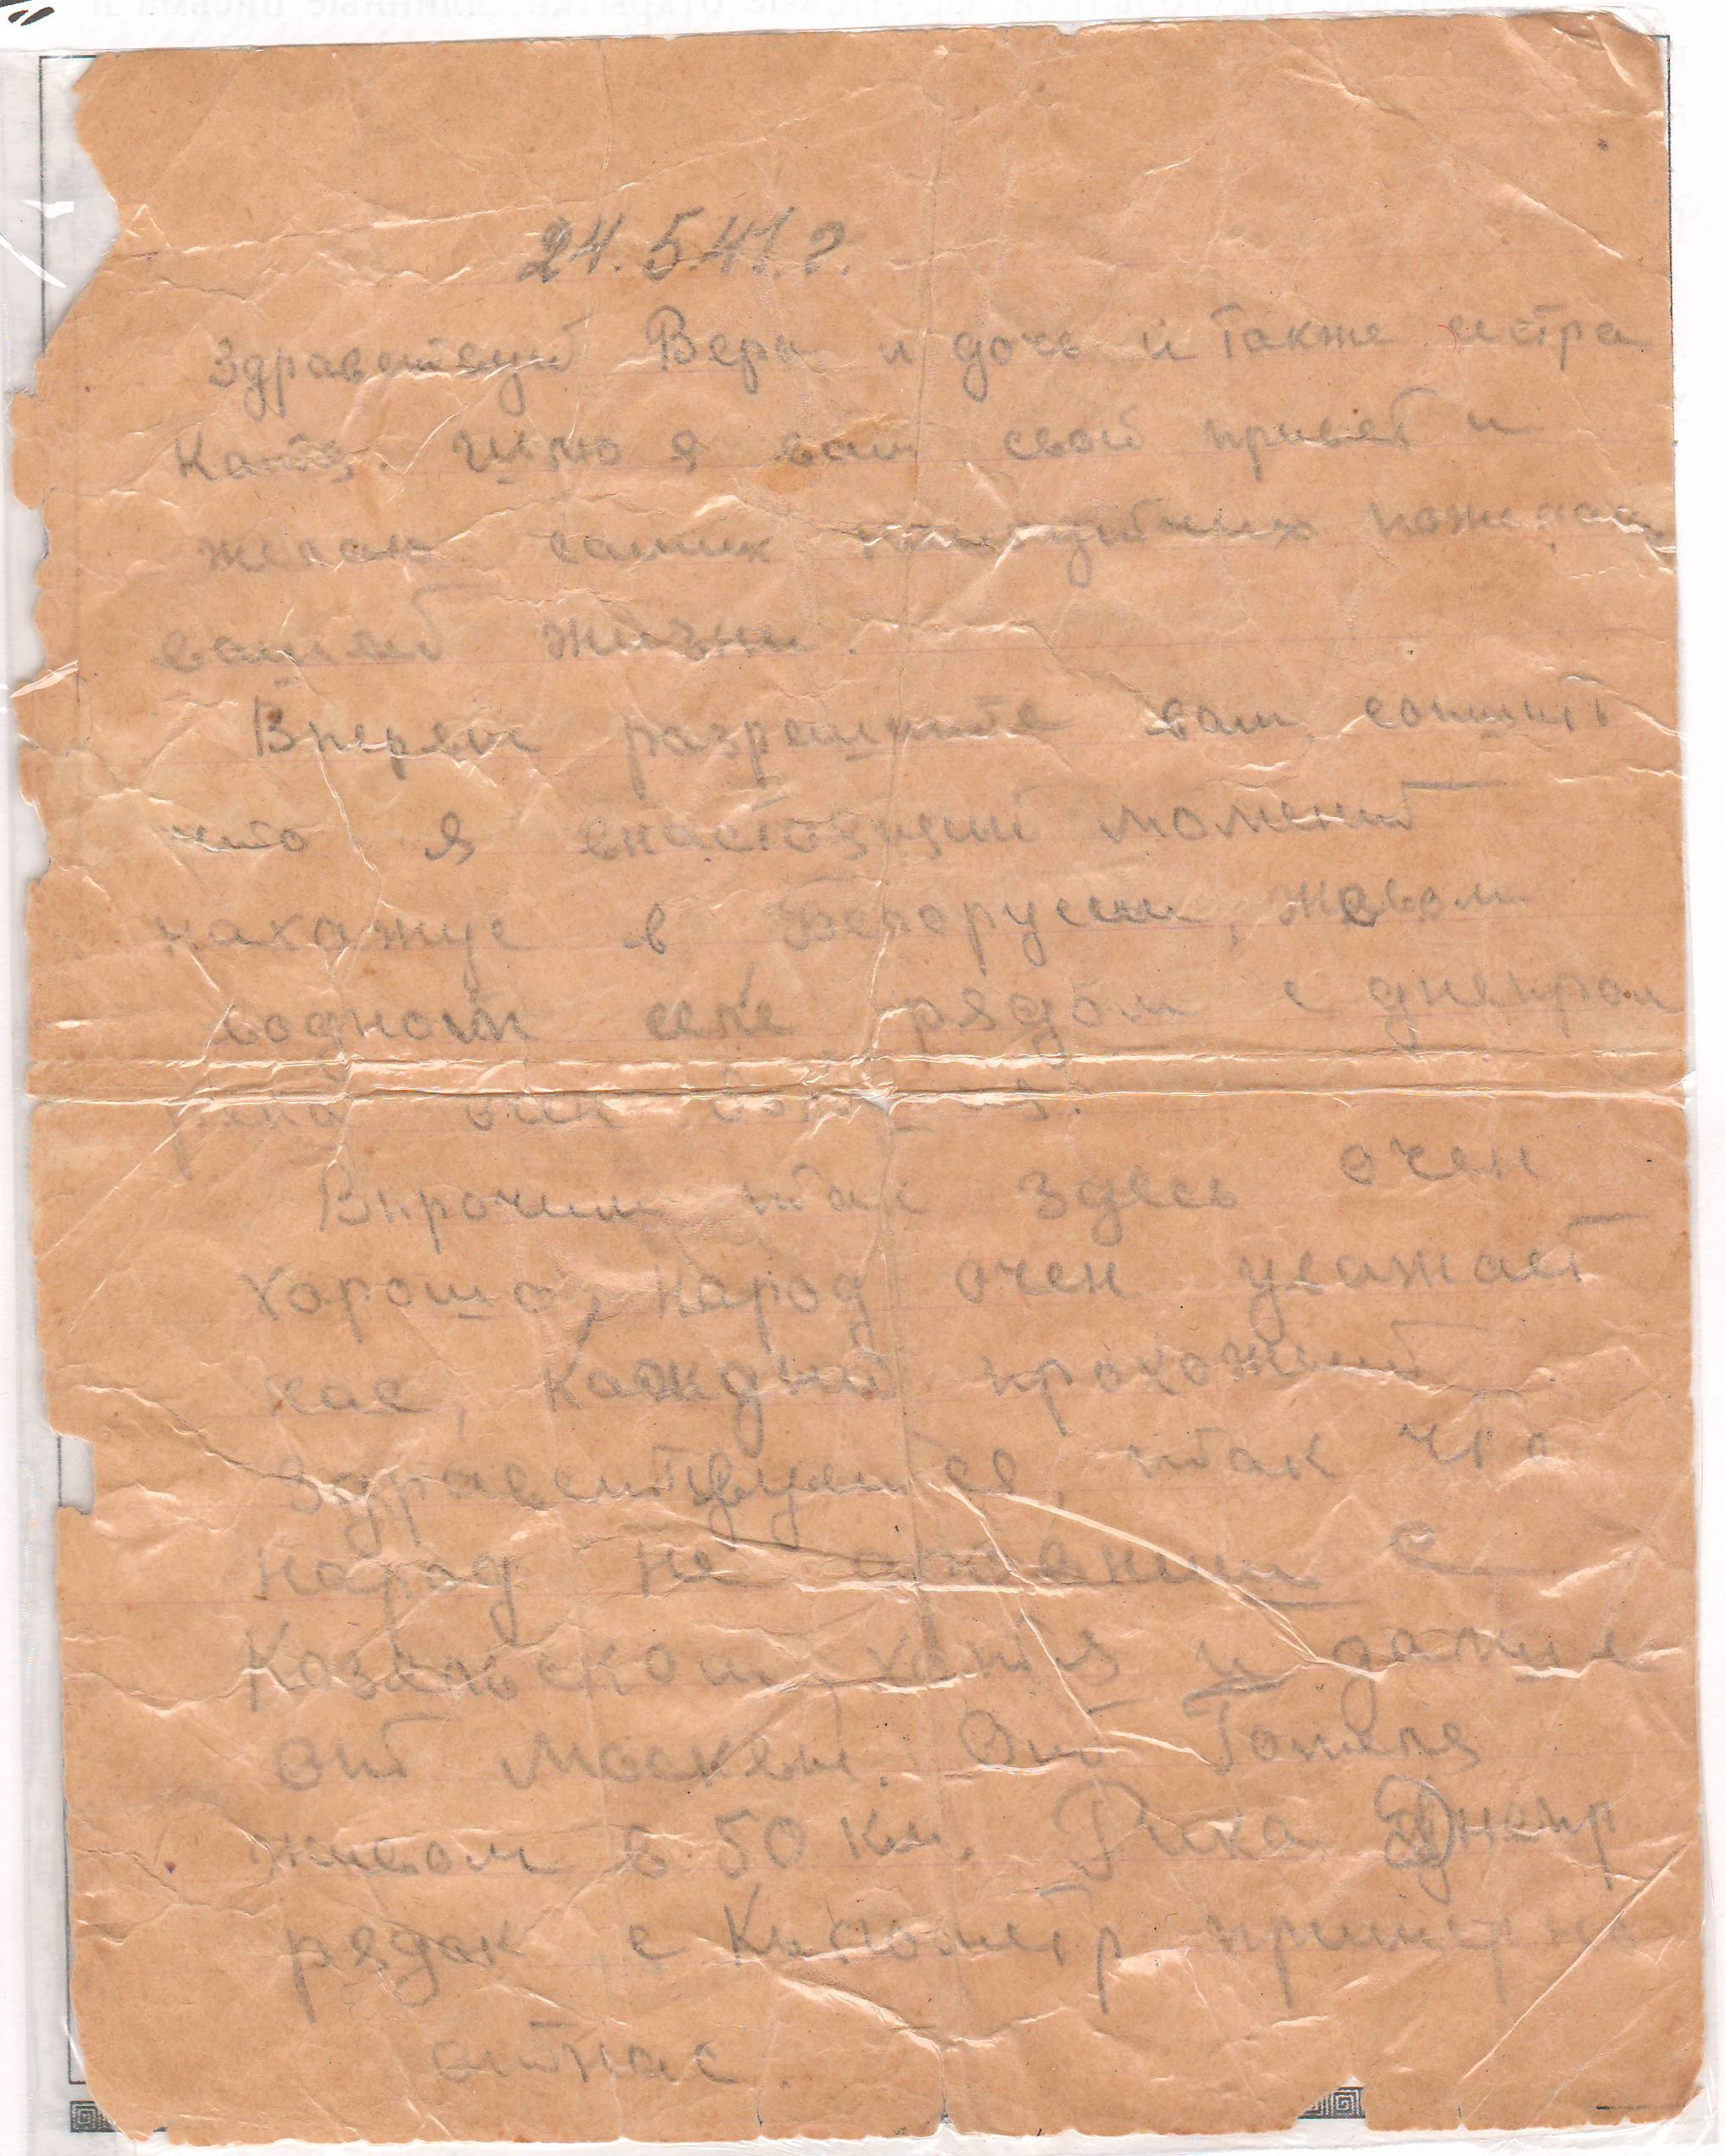 24.5.41.г.
Здравствуй Вера и дочь и также систра
Катя. Шлю я вам свой привет и
желаю самих наилутших пожелан
вашей жизни.
Вперьвы разрешите вам сопшить
что я внастоящий момент
нахажус в Белорусии, живем
водном селе рядом с днепром
река очен большая.
Впрочим так здесь очен
хорошо, народ очен уважает
нас, Каждый прохожий
Здравствуется, так что
народ не сравниш с
Козельском, хотя и далше
от Москвы. От Гомеля
живем в 50 Км. Рика Днепр
рядом с Километр примерно
отнас.